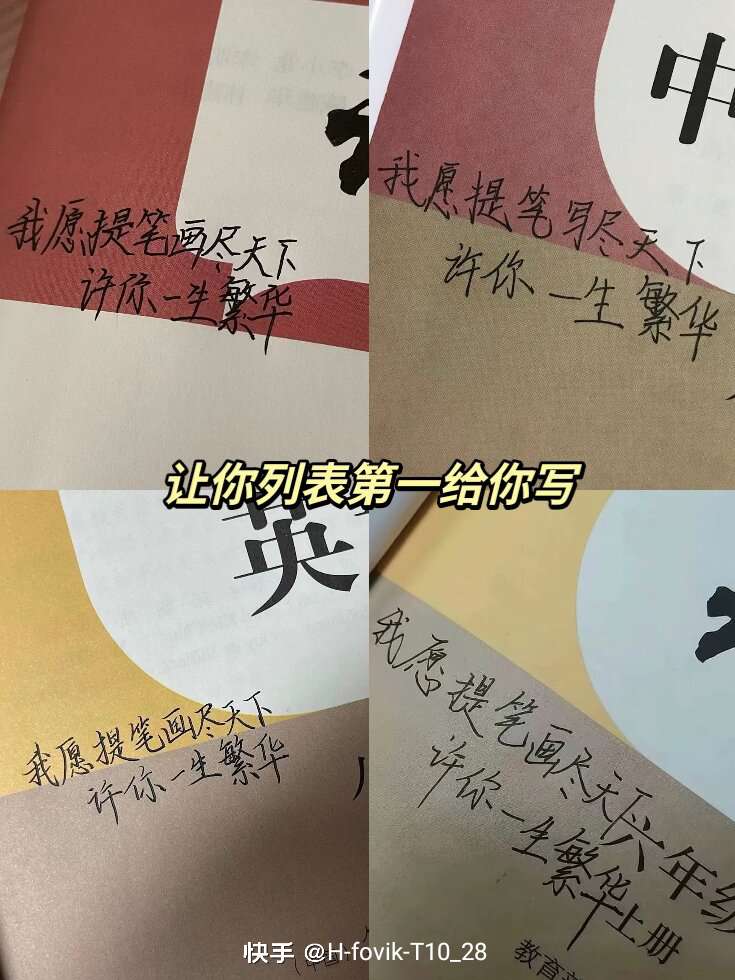 我愿提笔画尽天下
许你一生繁华
中
我愿提笔写尽天下
许你一生繁华
让你列表第一给你写
英
我愿提笔画尽天下
许你一生繁华
我愿提笔画尽天下
许你一生繁华
六年级
上册
教育
快手 @H-fovik-T10_28